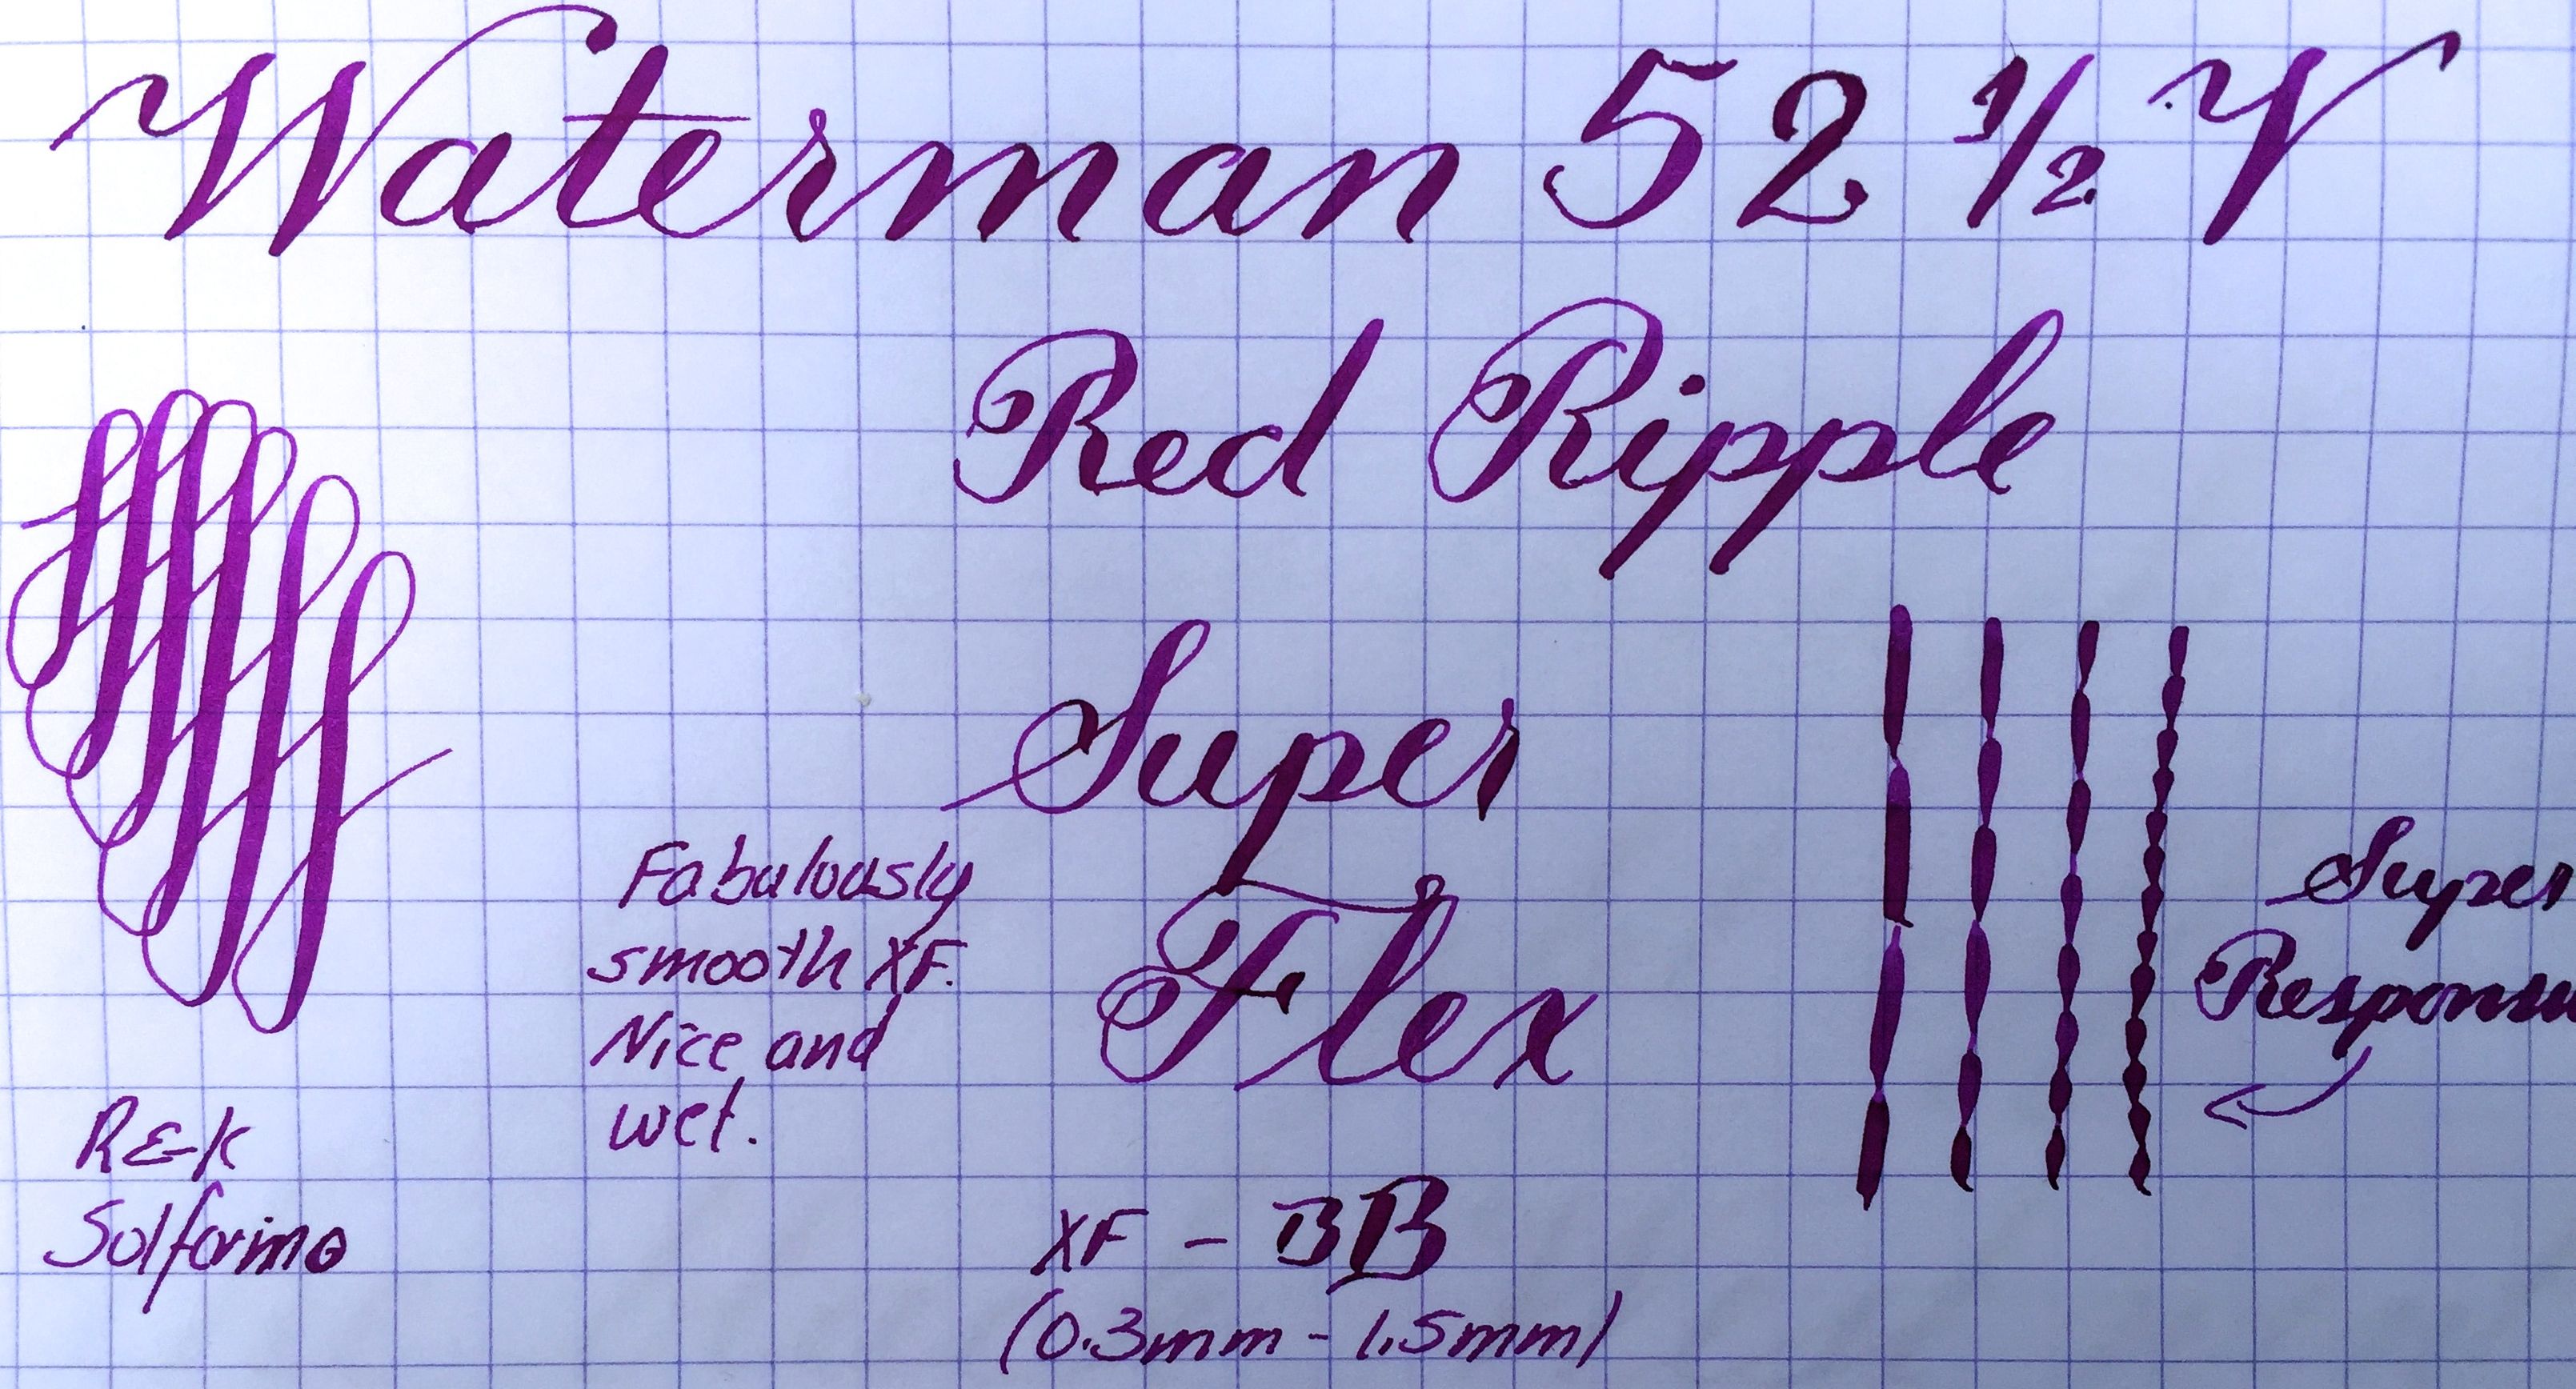 Waterman 52 ½ V
Red Ripple
Super
Flex
Fabulously
smooth XF.
Nice and
wet.
Super
Responsi
R&K
Solferino
XF - BB
(0.3mm - 1.5mm)